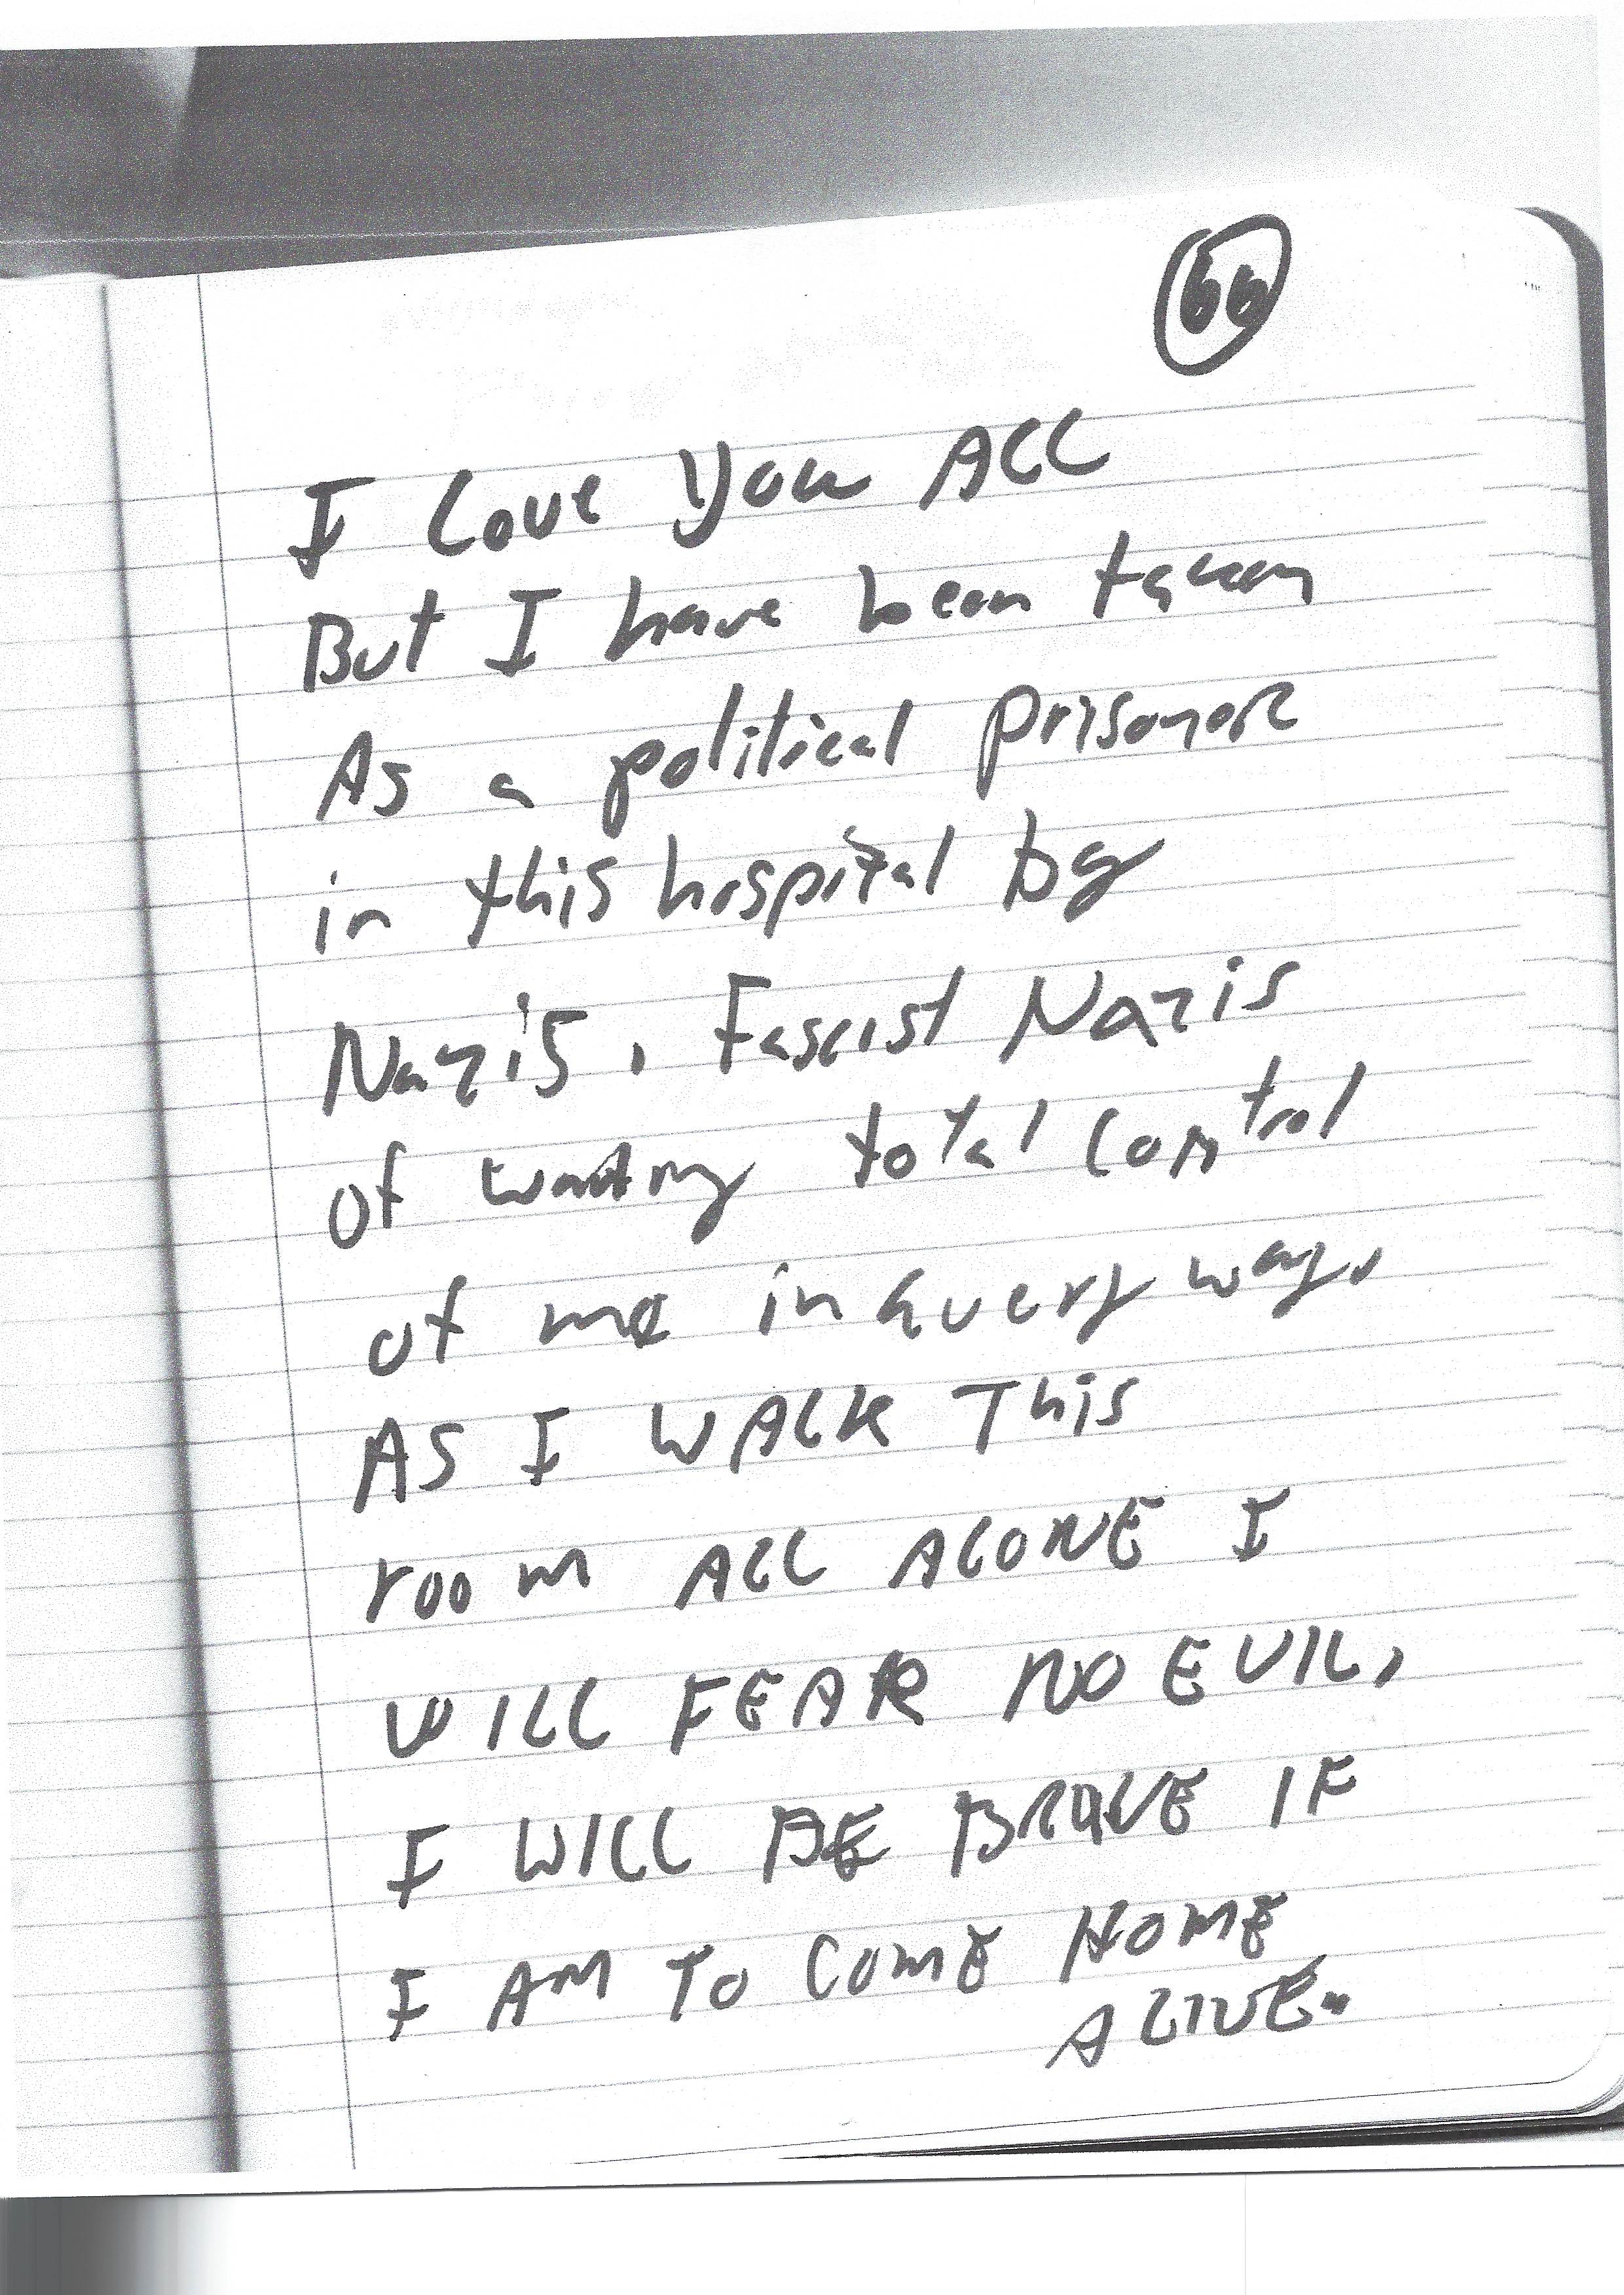 66
I Love You ALL
But I have been taken
As a political prisoner
in this hospital by
Nazis, Fascist Nazis
of wanting total control
of me in every way.
AS I WALK This
room ALL ALONE I
WILL FEAR NO EVIL,
I WILL BE BRAVE IF
I AM TO COME HOME
ALIVE.